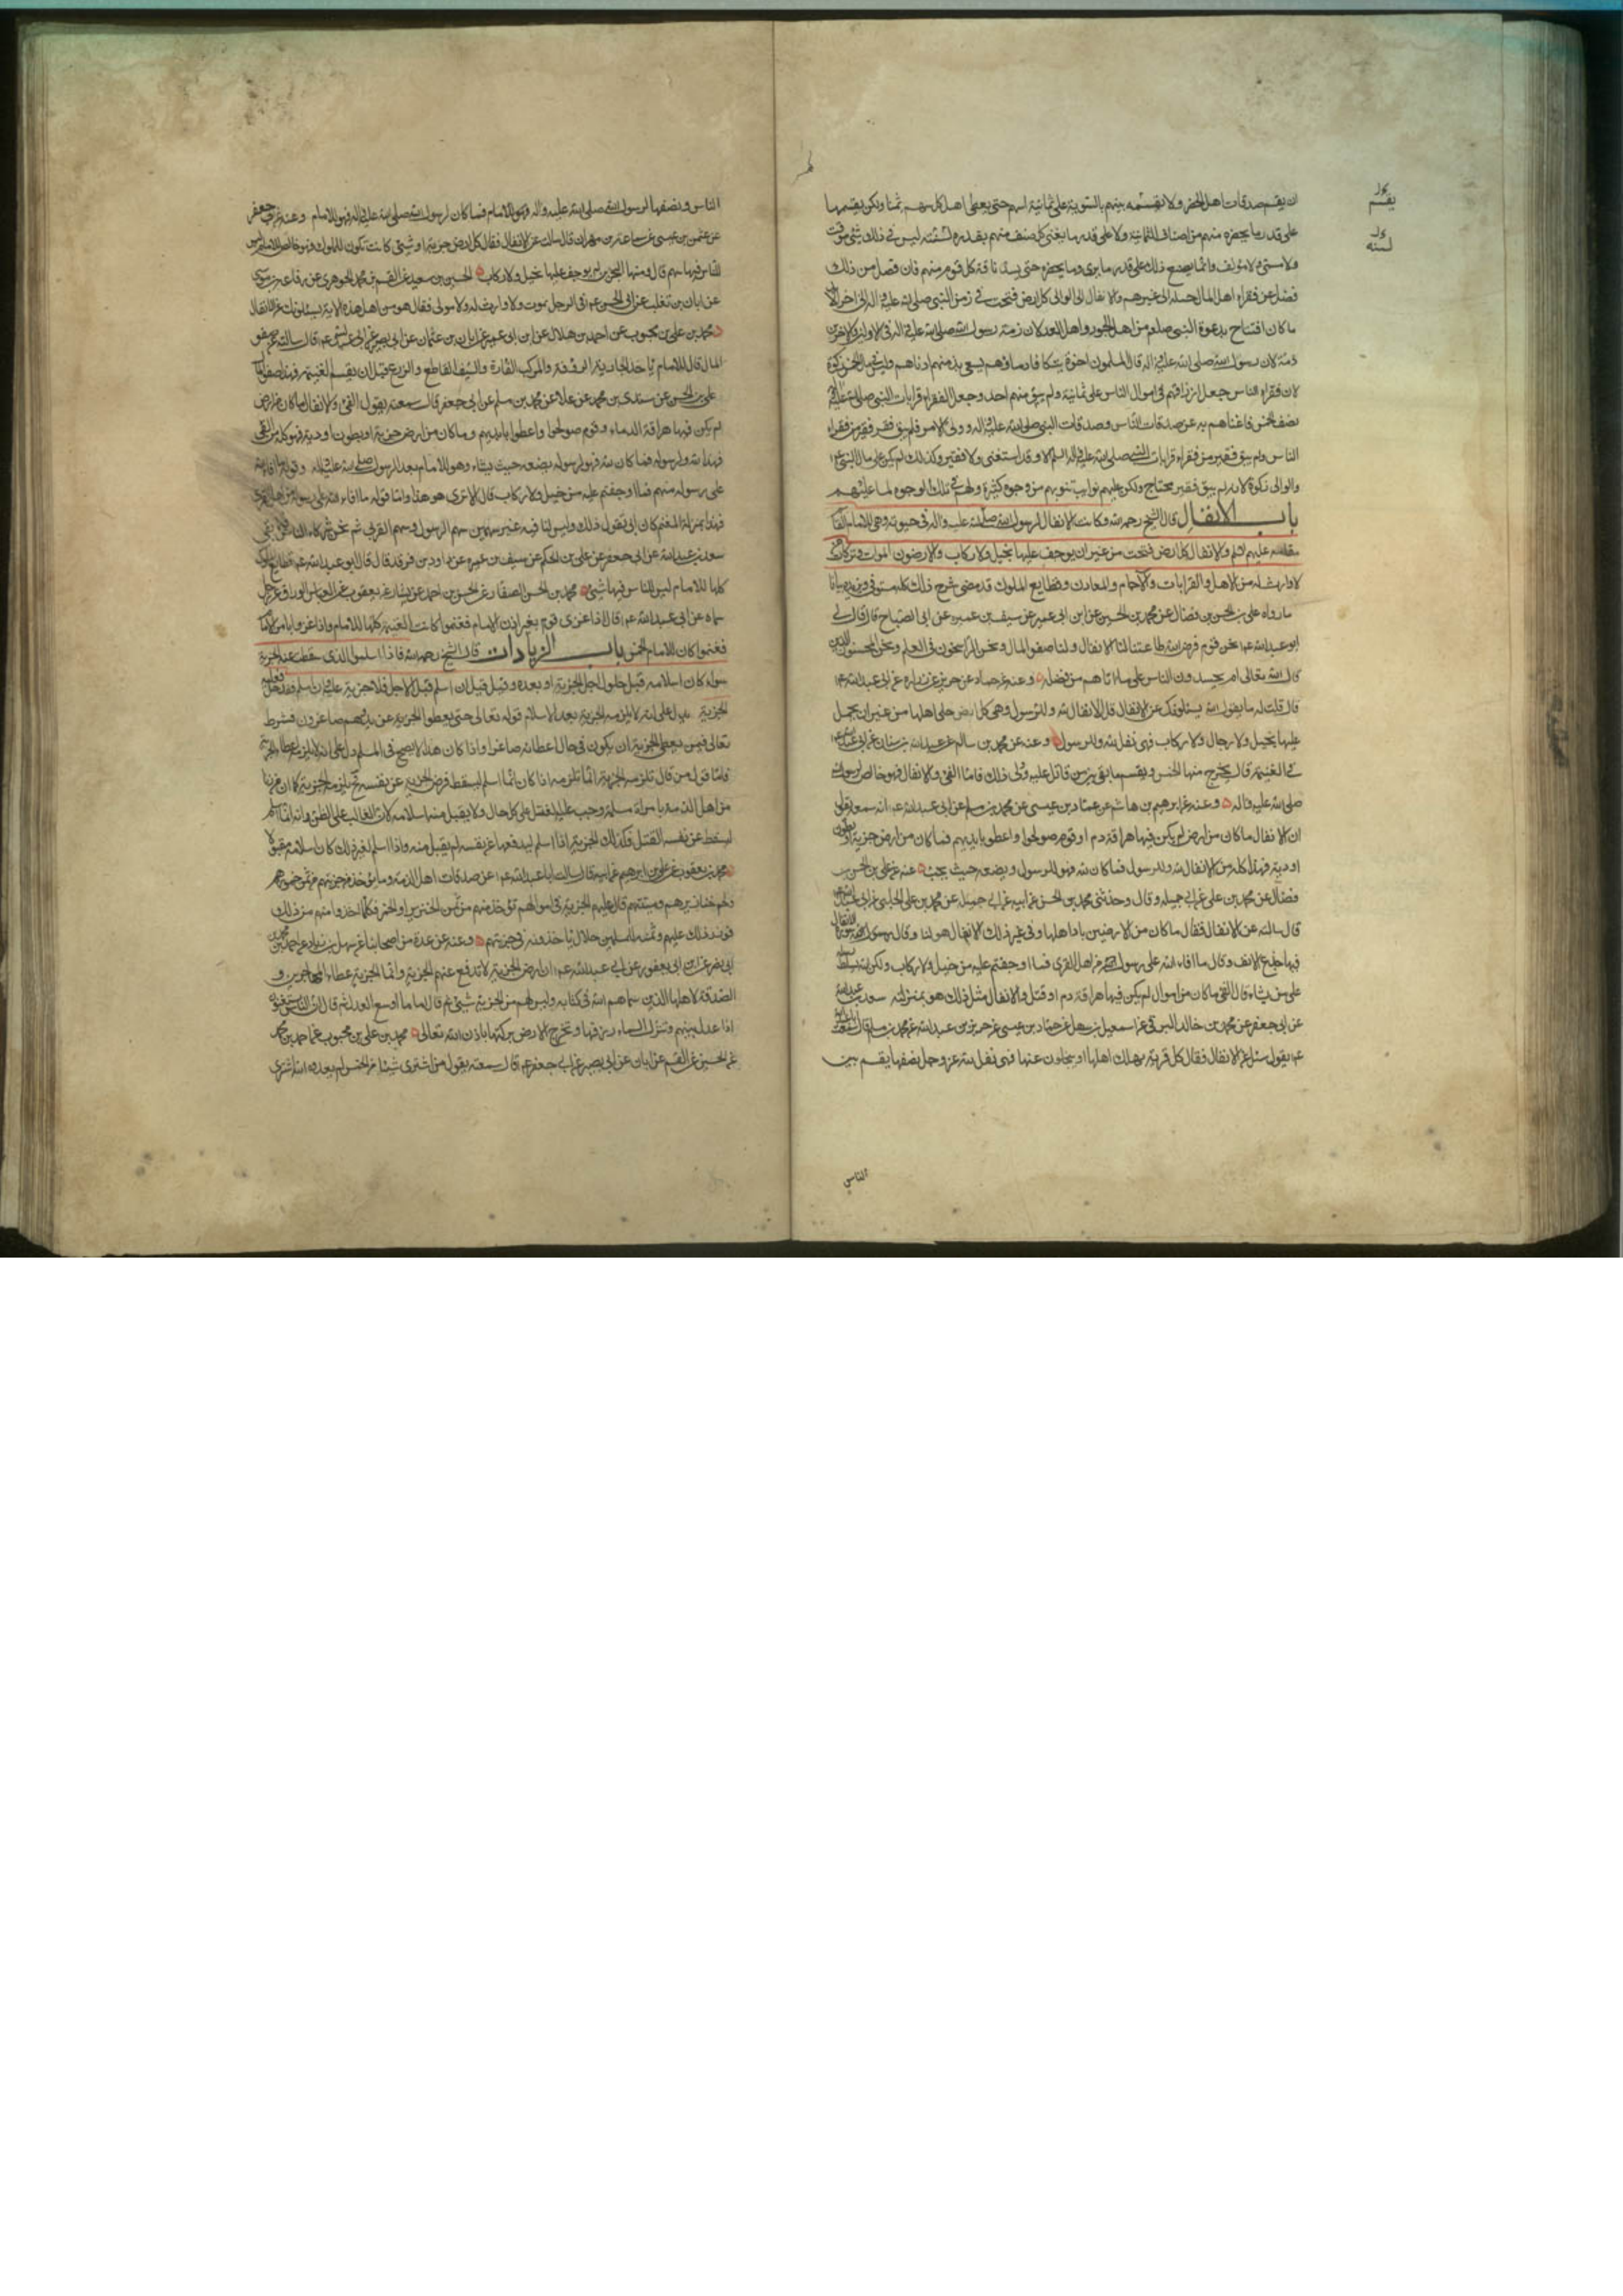 ان يقسم صدقات اهل الحضر ولا يقسمه بينهم بالسوية على ثمانية اسهم حتى يعطى اهل كل سهم ثمنا ولكن يقسمها
على قدر ما يحضره منهم من اصناف الثمانية ولا على قدر ما يغنى كل صنف منهم بقدره لسنته ليس في ذلك شئ موقت
ولا مسمى ولا مؤلف وانما يصنع ذلك على قدر ما يرى وما يحضره حتى يسد فاقة كل قوم منهم فان فضل من ذلك
فضل عن فقراء اهل المال حمله الى غيرهم والانفال الى الوالى كل ارض فتحت في زمن النبي صلى الله عليه واله الى اخر الابد
ما كان افتتاح بدعوة النبى صلعم من اهل الجور واهل العدل لان ذمة رسول الله صلى الله عليه واله في الاولين والاخرين
ذمة لان رسول الله صلى الله عليه واله قال المسلمون اخوة يتكافا دماؤهم يسعى بذمتهم ادناهم وليس في مال الخمس زكوة
لان فقراء الناس جعل ارزاقهم في اموال الناس على ثمانية ولم يبق منهم احد وجعل لفقراء قرابات النبي صلى الله عليه واله
نصف الخمس فاغناهم به عن صدقات الناس وصدقات النبى صلى الله عليه واله وولى الامر فلم يبق فقير من فقراء
الناس ولم يبق فقير من فقراء قرابات النبى صلى الله عليه واله الا وقد استغنى ولا فقير وكذلك لم يكن على مال النبى ع
والوالى زكوة لانه لم يبق فقير محتاج ولكن عليهم نوايب تنوبهم من وجوه كثيرة ولهم في تلك الوجوه كما عليهم
باب الانفال قال الشيخ رحمه الله وكانت الانفال لرسول الله صلى الله عليه واله في حيوته وهى للامام القائم
مقامه عليهم السلم والانفال كل ارض فتحت من غير ان يوجف عليها بخيل ولا ركاب والارضون الموات وتركات من
لا وارث له من الاهل والقرابات والآجام والمعادن وقطايع الملوك قد مضى شرح ذلك كله مستوفى ونزيده بيانا
ما رواه على بن الحسن بن فضال عن محمد بن الحسين عن ابن ابى عمير عن سيف بن عميره عن ابى الصباح قال قال لى
ابو عبد الله ع نحن قوم فرض الله طاعتنا لنا الانفال ولنا صفو المال ونحن الراسخون في العلم ونحن المحسودون الذين
قال الله تعالى ام يحسدون الناس على ما اتاهم من فضله وعنه عن حماد عن حريز عن زرارة عن ابى عبد الله ع
قال قلت له ما يقول الله يسئلونك عن الانفال قل الانفال لله وللرسول وهى كل ارض جلى اهلها من غير ان يحمل
عليها بخيل ولا رجال ولا ركاب فهى نفل لله وللرسول وعنه عن محمد بن سالم عن عبد الله بن سنان عن ابى عبد الله ع
في الغنيمة قال يخرج منها الخمس ويقسم ما بقى بين من قاتل عليه وولى ذلك فاما الفئ والانفال فهو خالص لرسول الله
صلى الله عليه واله وعنه عن ابرهيم بن هاشم عن حماد بن عيسى عن محمد بن مسلم عن ابى عبد الله ع انه سمعه يقول
ان الانفال ما كان من ارض لم يكن فيها هراقة دم او قوم صولحوا واعطوا بايديهم فما كان من ارض خربة او بطون
اودية فهذا كله من الانفال لله وللرسول فما كان لله فهو للرسول ويضعه حيث يحب عنه عن على بن الحسن بن
فضال عن محمد بن على عن ابى جميله وقال وحدثنى محمد بن الحسن عن ابيه عن ابى جميله عن محمد بن على الحلبى عن ابى عبد الله
قال سالته عن الانفال فقال ما كان من الارضين باد اهلها وفى غير ذلك الانفال هو لنا وقال سورة الانفال
فيها جدع الانف وقال ما افاء الله على رسوله من اهل القرى فما اوجفتم عليه من خيل ولا ركاب ولكن الله يسلط رسله
على من يشاء قال الفئ ما كان من اموال لم يكن فيها هراقة دم او قتل والانفال مثل ذلك هو بمنزلته سعد بن عبد الله
عن ابى جعفر عن محمد بن خالد البرقى عن اسمعيل بن سهل عن حماد بن عيسى عن حريز بن عبد الله عن محمد بن مسلم قال سمعت ابا عبد الله
ع يقول وسئل عن الانفال فقال كل قرية يهلك اهلها او يجلون عنها فهى نفل لله عز وجل نصفها يقسم بين
الناس
يقسم
لسنته
الناس ونصفها لرسول الله صلى الله عليه واله وهو للامام فما كان لرسول الله صلى الله عليه واله فهو للامام وعنه عن ابى جعفر
عن عثمن بن عيسى عن سماعة بن مهران قال سالته عن الانفال فقال كل ارض خربة او شئ كانت تكون للملوك فهو خالص للامام ليس
للناس فيها سهم قال ومنها البحرين لم يوجف عليها بخيل ولا ركاب الحسين بن سعيد عن القسم بن محمد الجوهرى عن رفاعة بن موسى
عن ابان بن تغلب عن ابى الحسن ع في الرجل يموت ولا وارث له ولا مولى فقال هو من اهل هذه الاية يسئلونك عن الانفال
محمد بن على بن محبوب عن احمد بن هلال عن ابن ابى عمير عن ابان بن عثمان عن ابى بصير عن ابى عبد الله ع قال سالته عن صفو
المال قال للامام ياخذ الجارية الروقة والمركب الفارة والسيف القاطع والدرع قبل ان يقسم الغنيمة فهذا صفو المال
على بن الحسن عن سندى بن محمد عن علا عن محمد بن مسلم عن ابى جعفر قال سمعته يقول الفئ والانفال ما كان من ارض
لم يكن فيها هراقة الدماء وقوم صولحوا واعطوا بايديهم وما كان من ارض خربة او بطون اودية فهو كله من الفئ
فهذا لله ولرسوله فما كان لله فهو لرسوله يضعه حيث يشاء وهو للامام بعد الرسول صلى الله عليه واله وقوله ما افاء الله
على رسوله منهم فما اوجفتم عليه من خيل ولا ركاب قال الا ترى هو هذا واما قوله ما افاء الله على رسوله من اهل القرى
فهذا بمنزلة المغنم كان ابى يقول ذلك وليس لنا فيه غير سهمين سهم الرسول وسهم القربى ثم نحن شركاء الناس فيما بقى
سعد بن عبد الله عن ابى جعفر عن على بن الحكم عن سيف بن عميره عن داود بن فرقد قال قال ابو عبد الله ع قطايع الملوك
كلها للامام ليس للناس فيها شئ محمد بن الحسن الصفار عن الحسن بن احمد بن بشار عن يعقوب عن العباس الوراق عن رجل
سماه عن ابى عبد الله ع قال اذا غزى قوم بغير اذن الامام فغنموا كانت الغنيمة كلها للامام واذا غزوا بامر الامام
فغنموا كان للامام الخمس باب الزيادات قال الشيخ رحمه الله فاذا اسلم الذى سقطت عنه الجزية
سواء كان اسلامه قبل حلول اجل الجزية او بعده وقيل قبل ان اسلم قبل الاجل فلا جزية عليه وان اسلم وقد حل فعليه
الجزية يدل على انه لا يلزمه الجزية بعد الاسلام قوله تعالى حتى يعطوا الجزية عن يد وهم صاغرون فشرط
تعالى فيمن يعطى الجزية ان يكون في حال اعطائه صاغرا واذا كان هذا لا يصح في المسلم دل على انه لا يلزمه اعطاء الجزية
فاما قول من قال تلزمه الجزية انما تلزمه اذا كان انما اسلم ليسقط فرض الجزية عن نفسه
من اهل الذمة بامراة مسلمة وجب عليه القتل على كل حال ولا يقبل منه اسلامه لان الغالب على الظن انه انما اسلم
ليسقط عن نفسه القتل وكذلك الجزية اذا اسلم ليدفعها عن نفسه لم يقبل منه واذا اسلم لغير ذلك كان اسلامه مقبولا
محمد بن يعقوب عن على بن ابرهيم عن ابيه قال سالت ابا عبد الله ع عن صدقات اهل الذمة وما يؤخذ من جزيتهم من ثمن خمورهم
ولحم خنازيرهم وميتتهم قال عليهم الجزية في اموالهم تؤخذ منهم من ثمن لحم الخنزير او الخمر فكلما اخذوا منهم من ذلك
فوزر ذلك عليهم وثمنه للمسلمين حلال ياخذونه في جزيتهم وعنه عن عدة من اصحابنا عن سهل بن زياد عن احمد بن محمد بن
ابى نصر عن ابن ابى يعفور عن ابى عبد الله ع ان ارض الجزية لا ترفع عنهم الجزية وانما الجزية عطاء المهاجرين و
الصدقة لاهلها الذين سماهم الله في كتابه وليس لهم من الجزية شئ ثم قال ما اوسع العدل ثم قال ان الناس يستغنون
اذا عدل بينهم وتنزل السماء رزقها وتخرج الارض بركتها باذن الله تعالى محمد بن على بن محبوب عن احمد بن محمد
عن الحسين عن القسم عن ابان عن ابى بصير عن ابى جعفر ع قال سمعته يقول من اشترى شيئا من الخمس لم يعذره الله اشترى